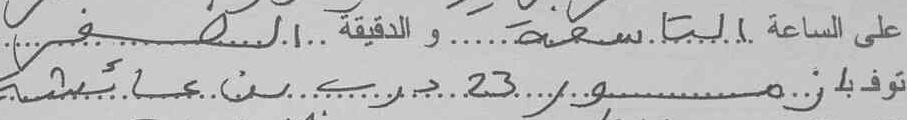 على الساعة التاسعة و الدقيقة الصفر
توفي بازمور 23 درب بن عائشة